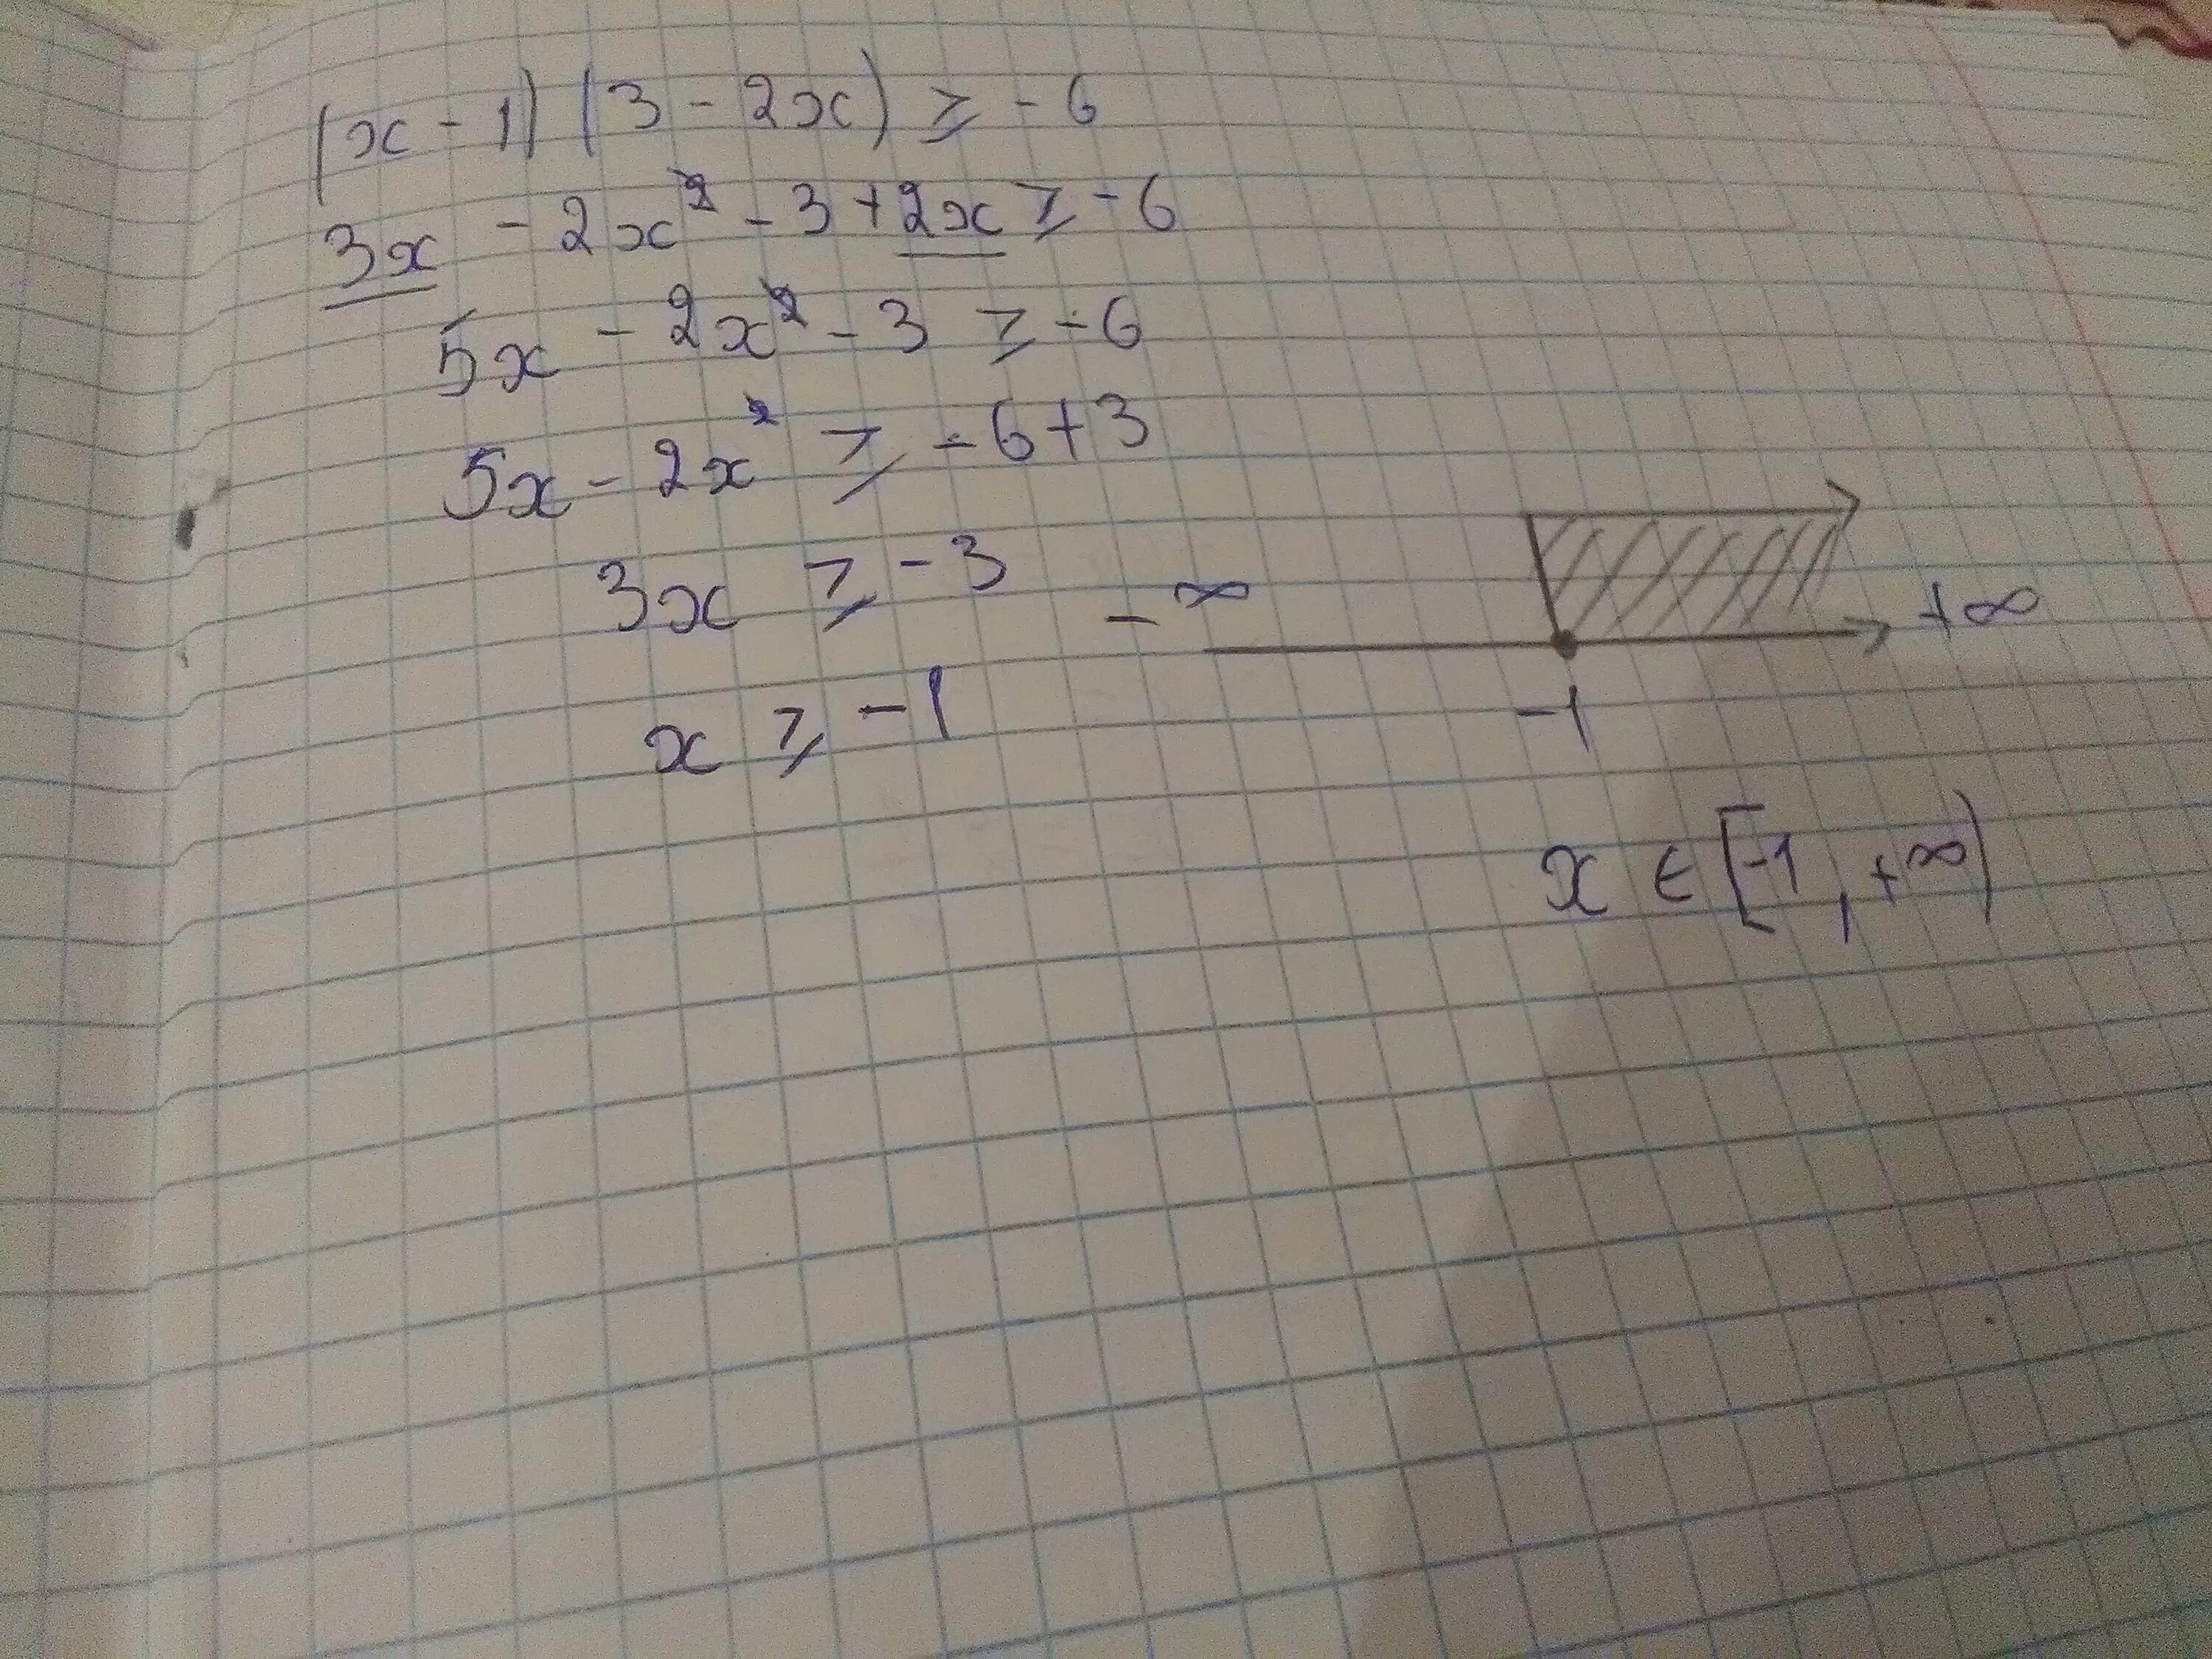 (x - 1) (3 - 2x) ≥ - 6
3x - 2x² - 3 + 2x ≥ - 6
5x - 2x² - 3 ≥ - 6
5x - 2x² ≥ - 6 + 3
3x ≥ - 3
x ≥ - 1
- ∞ +∞
-1
x ∈ [-1 , +∞)